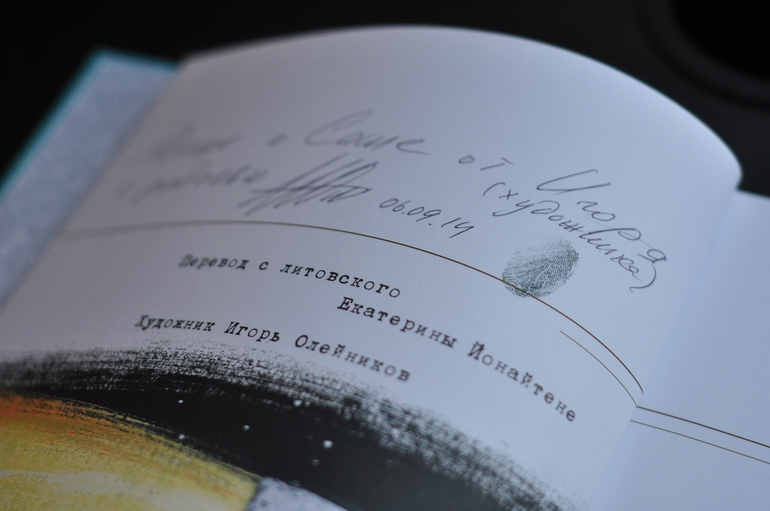 и Саше от Игоря
(художника)
06.09.14
Перевод с литовского
Екатерины Йонайтене
Художник Игорь Олейников